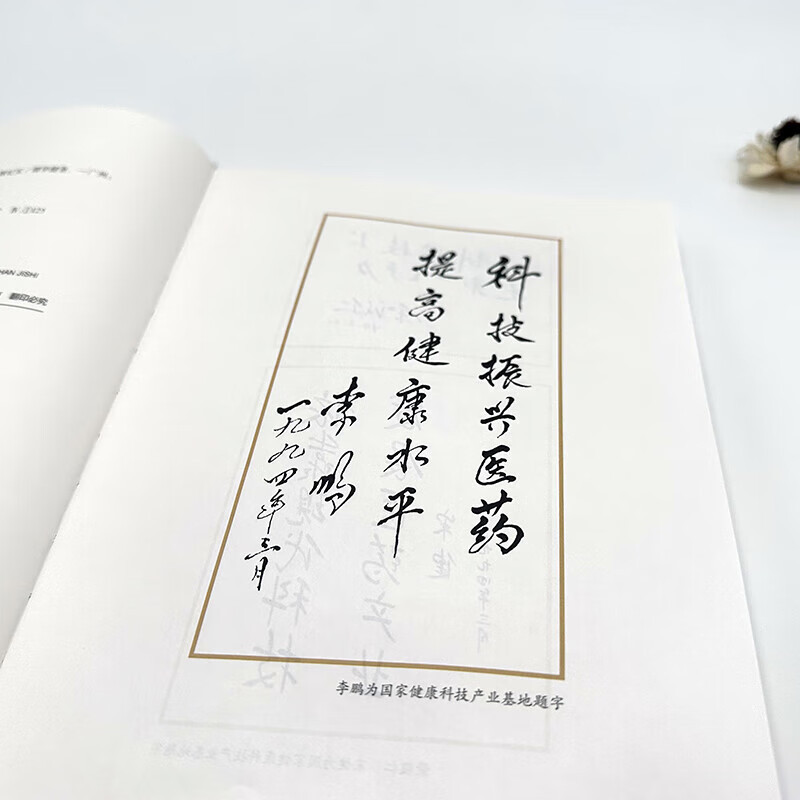 科技振兴医药
提高健康水平
李鹏
一九九四年三月
李鹏为国家健康科技产业基地题字
HAN JISHI
翻印必究